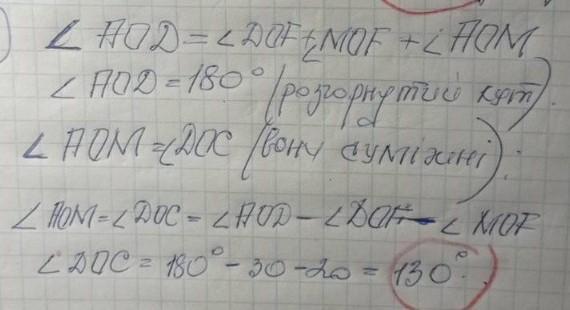 ∠AOD = ∠DOF + ∠MOF + ∠AOM
∠AOD = 180° (розгорнутий кут).
∠AOM = ∠DOC (вони суміжні);
∠AOM = ∠DOC = ∠AOD - ∠DOF - ∠MOF
∠DOC = 180° - 30 - 20 = 130°.